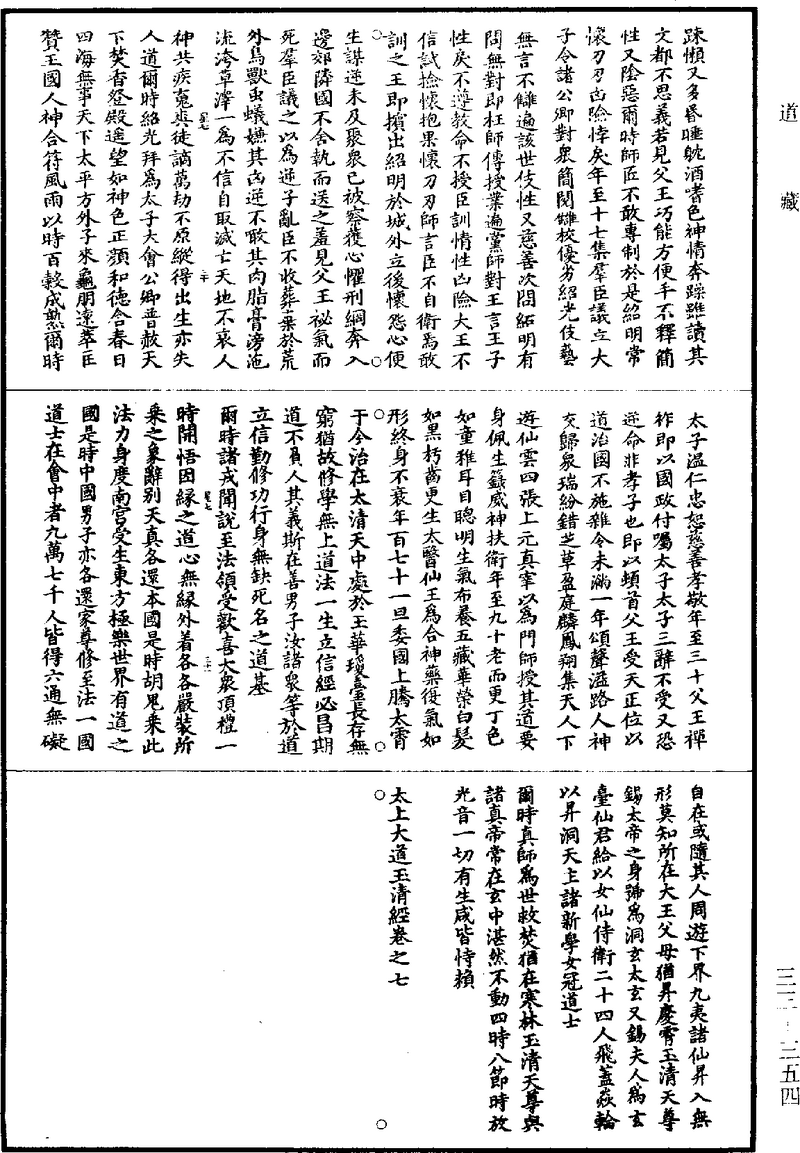 道藏
疎懶又多昏睡躭酒嗜色神情奔躁雖讀其
文都不思義若見父王巧能方便手不釋簡
性又陰惡爾時師匠不敢專制於是紹明常
懷刃刃凶險悖矣年至十七集羣臣議立大
子令諸公卿對衆簡閱讎校優劣紹光伎藝
無言不讎遍該世伎性又慈善次問紹明有
問無對即枉師傅授業遍黨師對王言王子
性戾不遵教命不授臣訓情性凶險大王不
信試撿懷抱果懷刃刃師言臣不自衛焉敢
訓之王即擯出紹明於城外立後懷怨心便
生謀逆未及聚衆已被察獲心懼刑網奔入
邊郊隣國不舍執而送之羞見父王祕氣而
死羣臣議之以爲逆子亂臣不收葬棄於荒
外鳥獸虫蟻嫌其凶逆不噉其肉脂膏滂沲
流洿草澤一爲不信自取滅亡天地不哀人
神共疾冤喪徒謫萬劫不原縱得出生亦失
人道爾時紹光拜爲太子大會公卿普赦天
下焚香登殿遥望如神色正顏和德合春日
四海無事天下太平方外子來龜朋遠萃臣
贊王國人神合符風雨以時百穀成熟爾時
太子温仁忠恕慈善孝敬年至三十父王禪
祚即以國政付囑太子太子三辭不受又恐
逆命非孝子也即以頓首父王受天正位以
道治國不施雜令未満一年頌聲溢路人神
交歸衆瑞紛錯芝草盈庭麟鳳翔集天人下
遊仙雲四張上元真宰以爲門師授其道要
身佩生籙威神扶衛年至九十老而更丁色
如童稚耳目聰明生氣布養五藏華榮白髮
如黑朽齒更生太醫仙王爲合神藥復氣如
形終身不衰年百七十一旦委國上騰太霄
于今治在太清天中處於玉華瓊室長存無
窮猶故修學無上道法一生立信經必昌期
道不負人其義斯在善男子汝諸衆等於道
立信勤修功行身無缺死名之道基
爾時諸戎聞說至法領受歡喜大衆頂禮一
時開悟因緣之道心無緣外着各各嚴裝所
乘之象辭别天真各還本國是時胡鬼乘此
法力身度南宮受生東方極樂世界有道之
國是時中國男子亦各還家尊修至法一國
道士在會中者九萬七千人皆得六通無礙
自在或隨其人周遊下界九夷諸仙昇入無
形莫知所在大王父母猶昇慶霄玉清天尊
錫太帝之身號爲洞玄太玄又錫夫人爲玄
臺仙君給以女仙侍衛二十四人飛蓋焱輪
以昇洞天上諸新學女冠道士
爾時真師爲世救焚猶在寒林玉清天尊與
諸真帝常在玄中湛然不動四時八節時放
光音一切有生咸皆恃賴
太上大道玉清經卷之七
三三-三五四